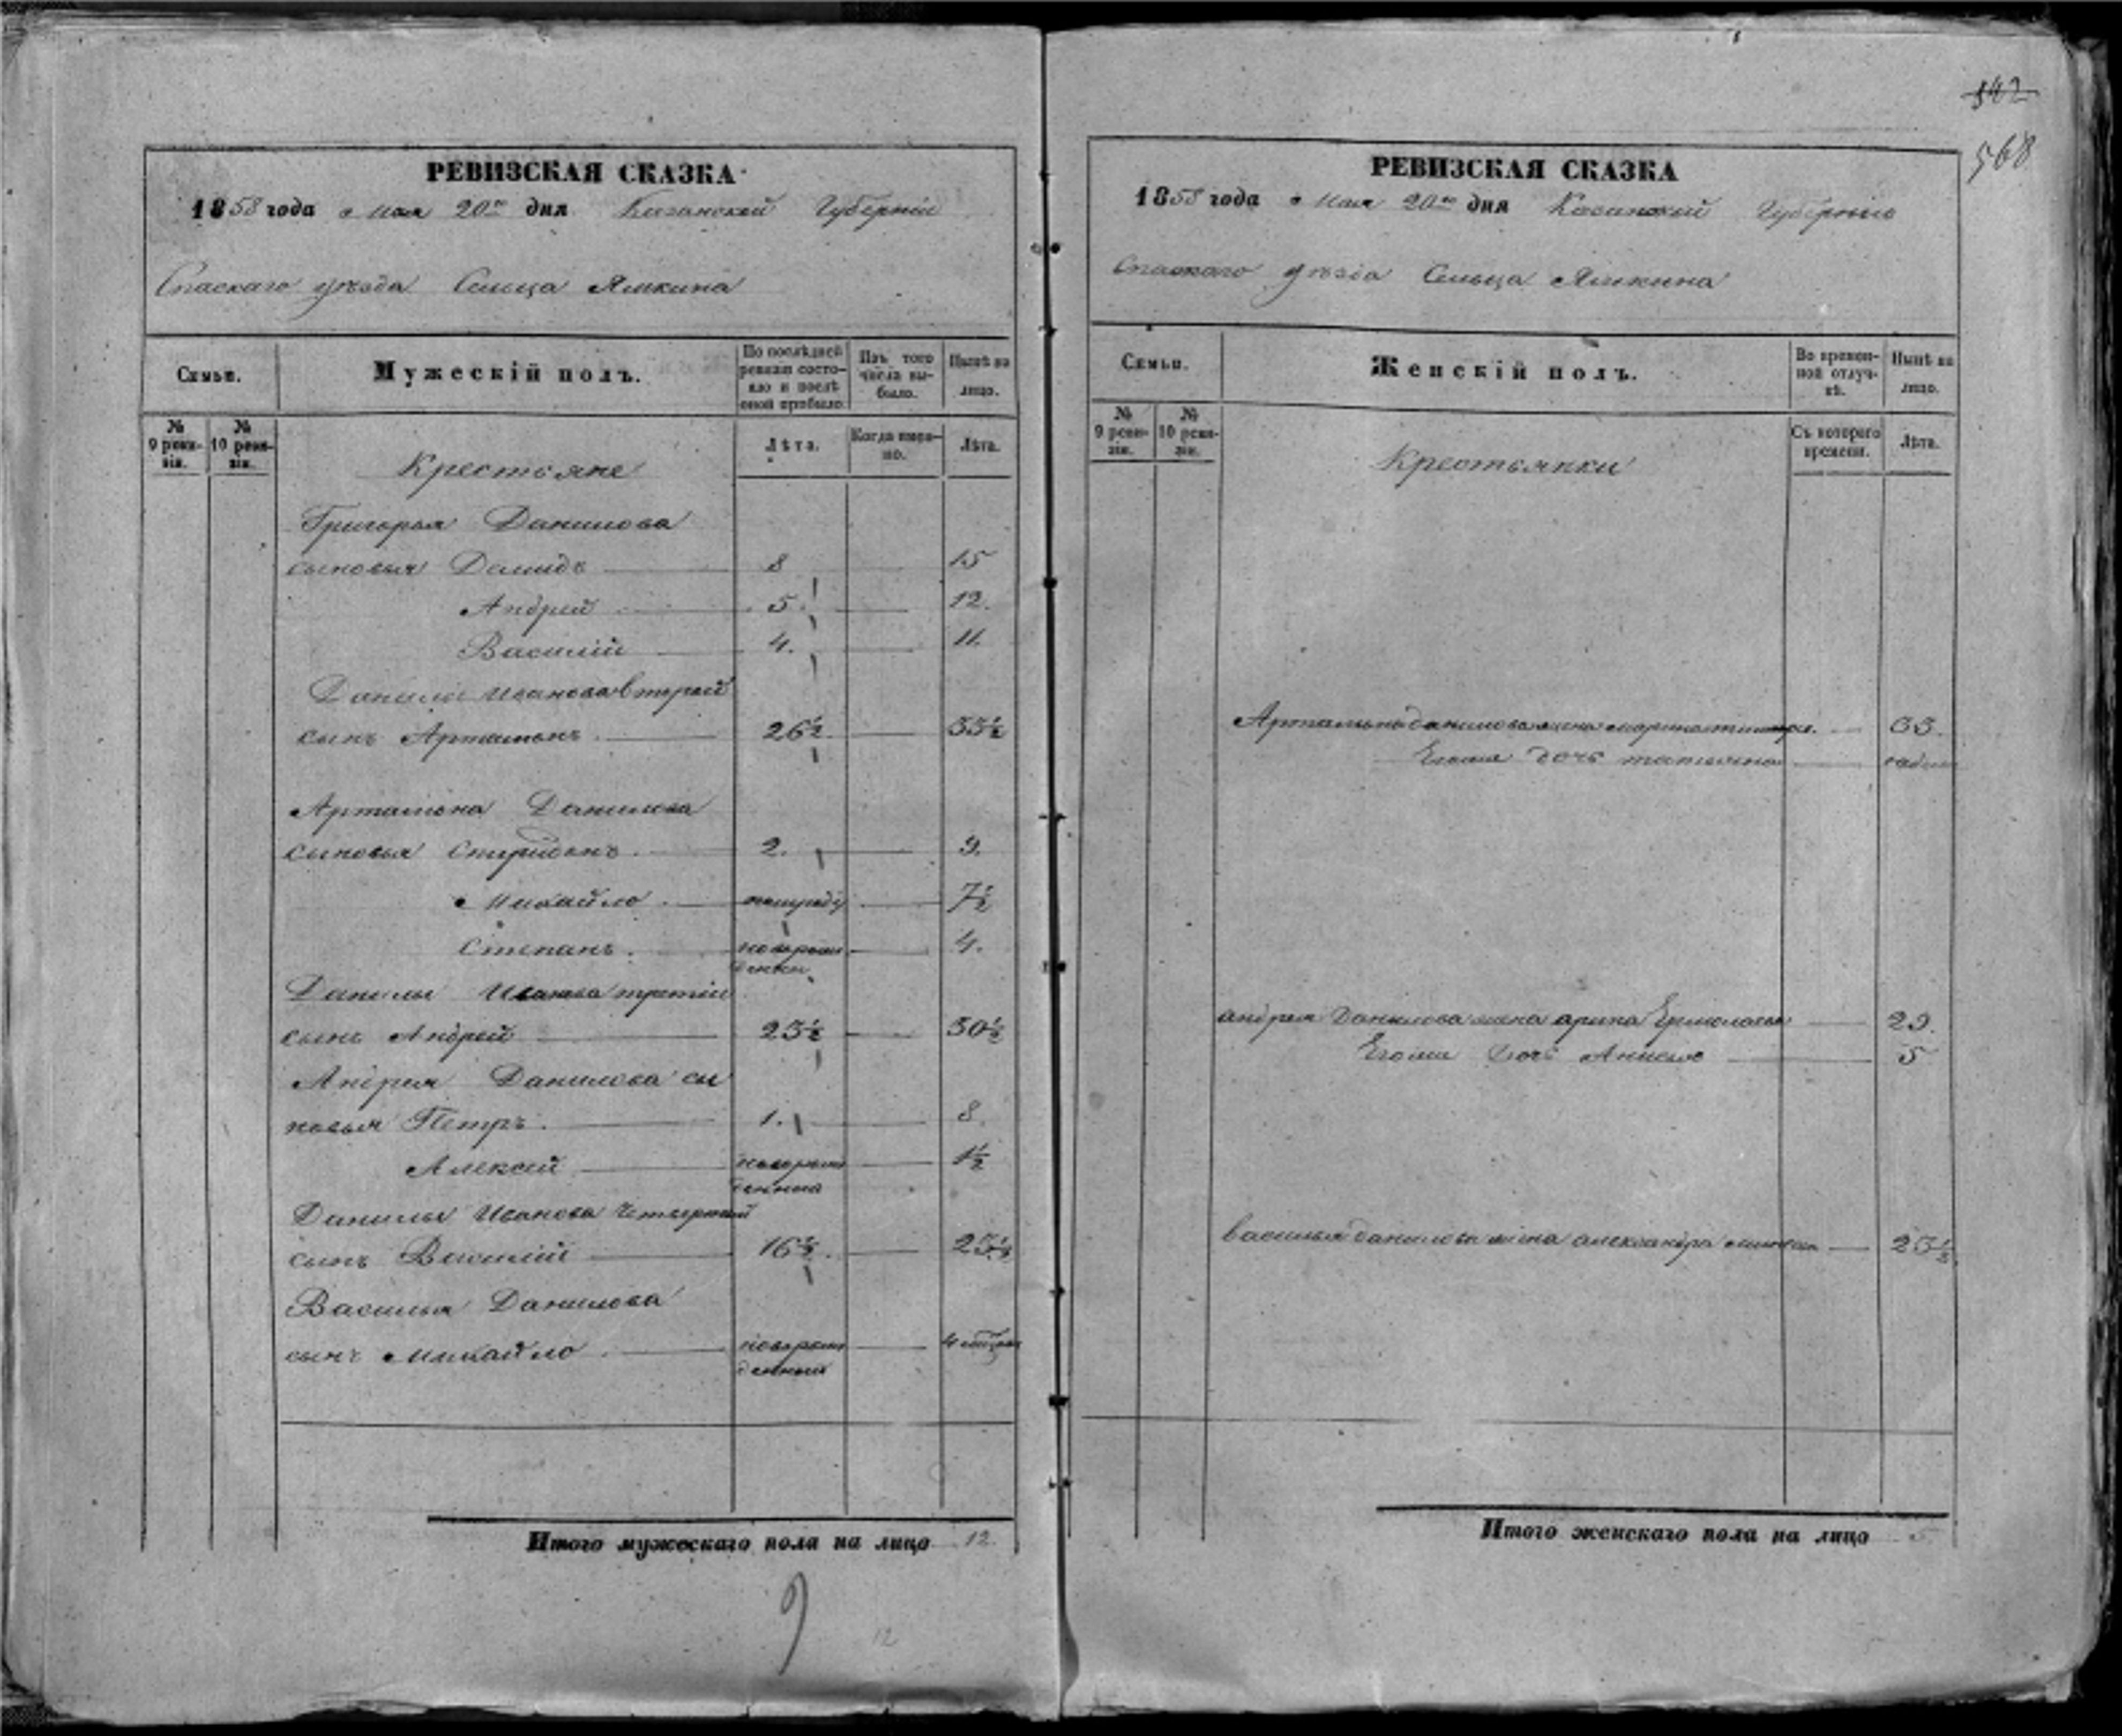 РЕВИЗСКАЯ СКАЗКА
1858 года Мая 20го дня Казанской Губернии
Спаскаго уѣзда Сельца Ямкина
Семьи.
Мужескій полъ.
По послѣдней ревизіи состояло и послѣ оной прибыло.
Изъ того числа выбыло.
Нынѣ на лицо.
№ 9 ревизіи.
№ 10 ревизіи.
Лѣта.
Когда именно.
Лѣта.
Крестьяне
Григорья Данилова
сыновья Демидъ 8 15
Андрей 5. 12.
Василій 4. 11.
Данилы Иванова второй
сынъ Артамонъ. 26½ 33½
Артамона Данилова
сыновья Спиридонъ. 2. 9.
Михайло. 7½
Степанъ. новорож 4.
денны
Данилы Иванова третій
сынъ Андрей 23½ 30½
Андрея Данилова сы
новья Петръ. 1. 8.
Алексей новорож 1½
денный
Данилы Иванова четвертый
сынъ Василій 16½. 23½
Василья Данилова
сынъ Михайло. новорож 4 месяца
денный
Итого мужескаго пола на лицо 12.
9
12
542
568
РЕВИЗСКАЯ СКАЗКА
1858 года Мая 20го дня Казанской Губерніи
Спаскаго уѣзда Сельца Ямкина
Семьи.
Женскій полъ.
Во временной отлучкѣ.
Нынѣ на лицо.
№ 9 ревизіи.
№ 10 ревизіи.
Съ котораго времени.
Лѣта.
Крестьянки
Артамона данилова жена марфа 33.
Егоже дочь татьяна
андрея Данилова жена арина Ермолаева 29.
Егоже дочь Анисья 5
василья данилова жена александра 23½
Итого женскаго пола на лицо 5